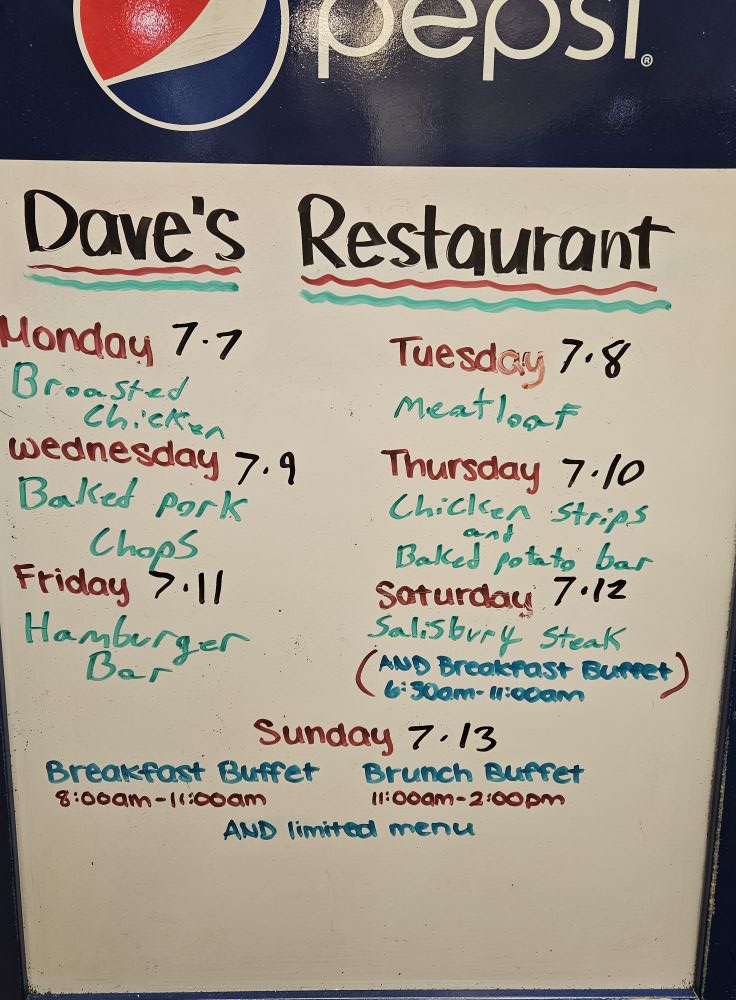 pepsi®
Dave's Restaurant
Monday 7.7
Broasted
Chicken
Tuesday 7.8
Meatloaf
Wednesday 7.9
Baked pork
Chops
Thursday 7.10
Chicken Strips
and
Baked potato bar
Friday 7.11
Hamburger
Bar
Saturday 7.12
Salisbury Steak
(AND Breakfast Buffet)
6:30am-11:00am
Sunday 7.13
Breakfast Buffet
8:00am-11:00am
Brunch Buffet
11:00am-2:00pm
AND limited menu